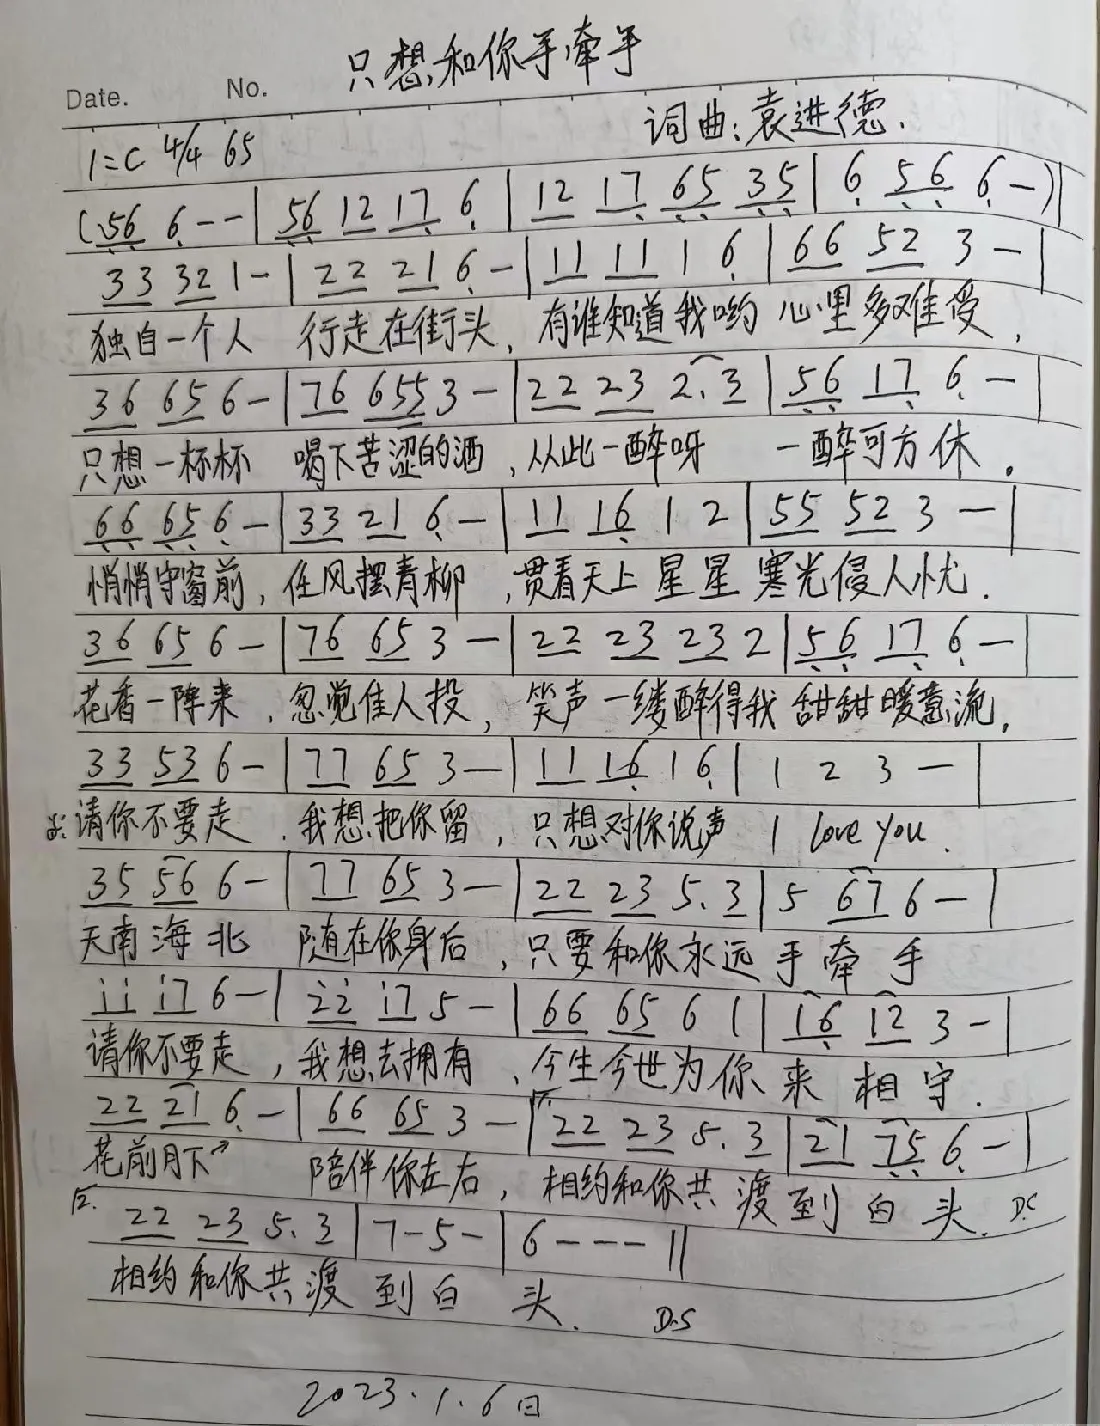 只想和你手牵手
Date. No.
词曲:袁进德.
1=C 4/4 65
(56 6 - - | 56 12 17 6 | 12 17 65 35 | 6 56 6 - )|
33 32 1 - | 22 21 6 - | 11 11 1 6 | 66 52 3 - |
独自一个人 行走在街头, 有谁知道我哟 心里多难受,
36 65 6 - | 76 655 3 - | 22 23 2. 3 | 56 17 6 - |
只想一杯杯 喝下苦涩的酒, 从此一醉呀 一醉可方休。
66 65 6 - | 33 21 6 - | 11 16 1 2 | 55 52 3 - |
悄悄守窗前, 任风摆青柳, 贯看天上星星 寒光侵人忧.
36 65 6 - | 76 65 3 - | 22 23 23 2 | 56 17 6 - |
花香一阵来, 忽觉佳人投, 笑声一缕醉得我 甜甜暖意流,
33 53 6 - | 77 65 3 - | 11 16 1 6 | 1 2 3 - |
请你不要走. 我想把你留, 只想对你说声 I love you.
35 56 6 - | 77 65 3 - | 22 23 5. 3 | 5 67 6 - |
天南海北 随在你身后, 只要和你永远手牵手
i i i 7 6 - | 2̇2̇ i7 5 - | 66 65 6 1 | 16 12 3 - |
请你不要走, 我想去拥有, 今生今世为你来相守.
22 21 6 - | 66 65 3 - | 22 23 5. 3 | 21 75 6 - |
花前月下 陪伴你左右, 相约和你共渡到白头. D.C
22 23 5. 3 | 7 - 5 - | 6 - - - ||
相约和你共渡到白头. D.S
2023.1.6日